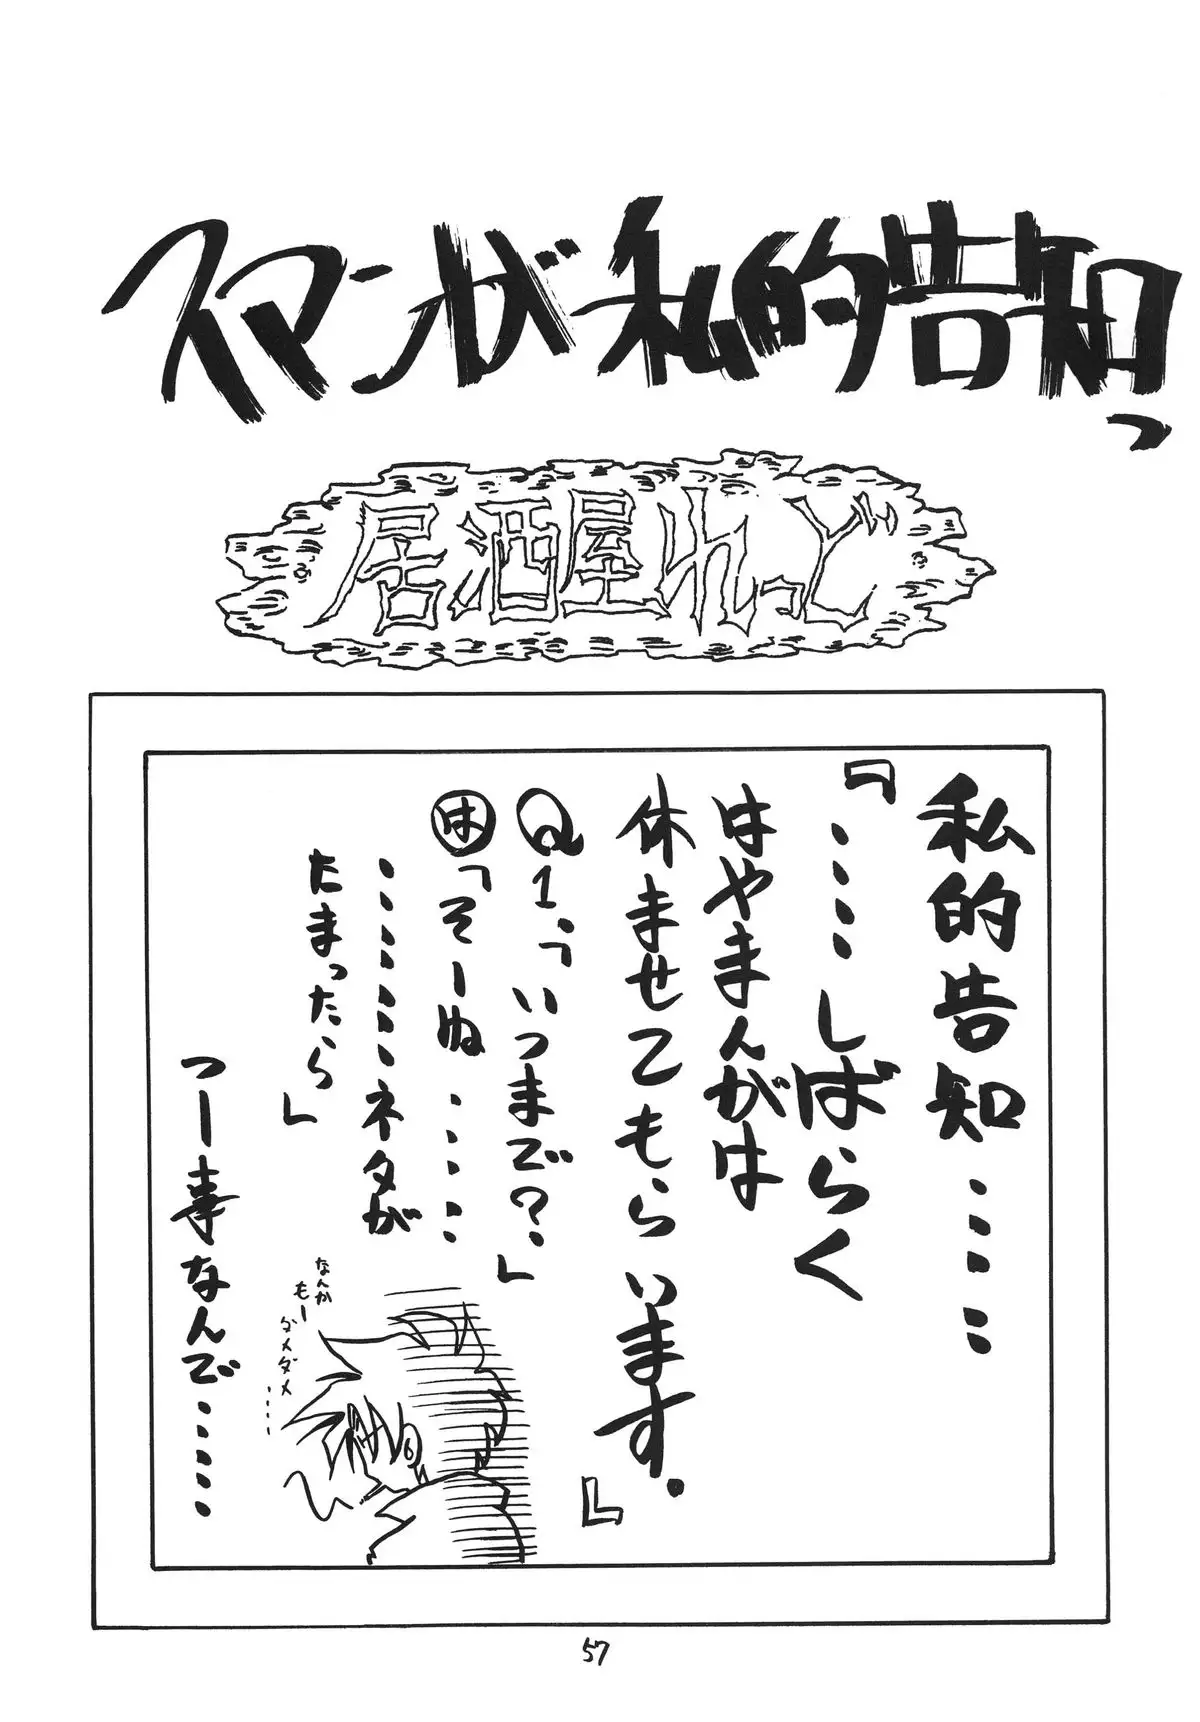 スマンが私的告知っ
居酒屋れっど
私的告知……
『……しばらく
はやまんがは
休ませてもらいます。』
Q1.「いつまで?」
は「そーぬ……
……ネタが
たまったら」
つー事なんで……
なんか
もー
ダメダメ
……
57